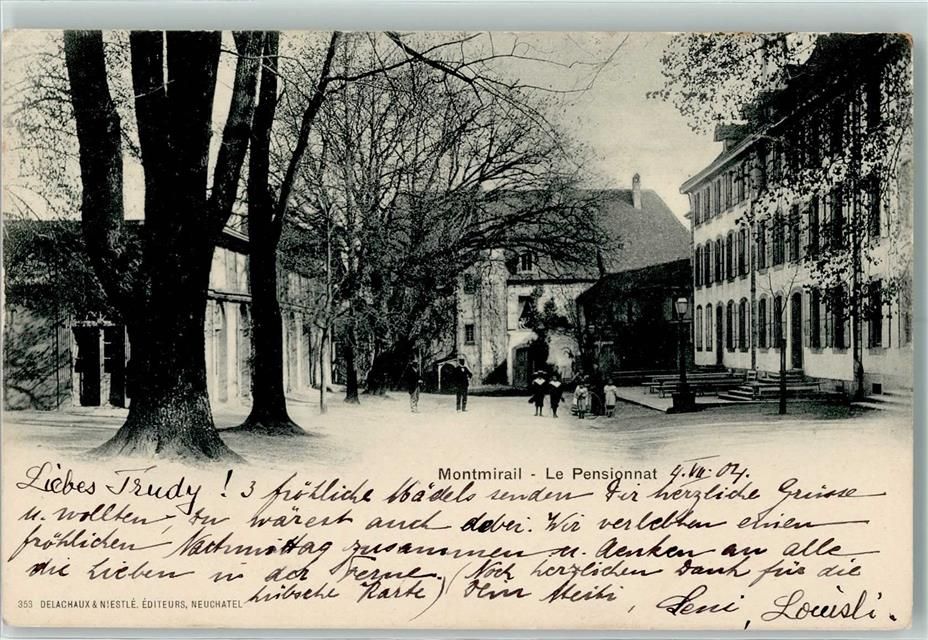 Montmirail - Le Pensionnat 4. VII. 04.
Liebes Trudy! 3 fröhliche Mädels senden Dir herzliche Grüsse
u. wollten, Du wärest auch dabei. Wir verlebten einen
fröhlichen Nachmittag zusammen u. denken an alle
die Lieben in der Ferne. (Noch herzlichen Dank für die
hübsche Karte) Dein Meiti, Leni, Louisli.
353 DELACHAUX & NIESTLÉ. ÉDITEURS, NEUCHATEL